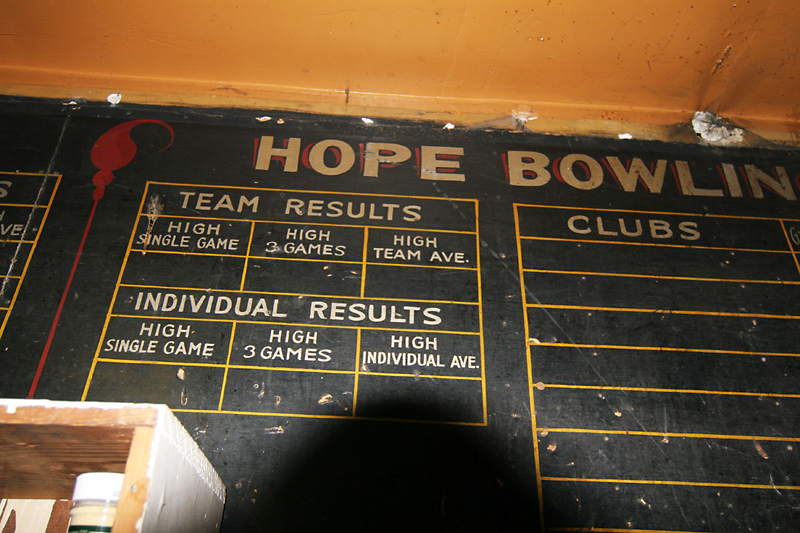 HOPE BOWLIN
TEAM RESULTS
HIGH SINGLE GAME
HIGH 3 GAMES
HIGH TEAM AVE.
INDIVIDUAL RESULTS
HIGH SINGLE GAME
HIGH 3 GAMES
HIGH INDIVIDUAL AVE.
CLUBS